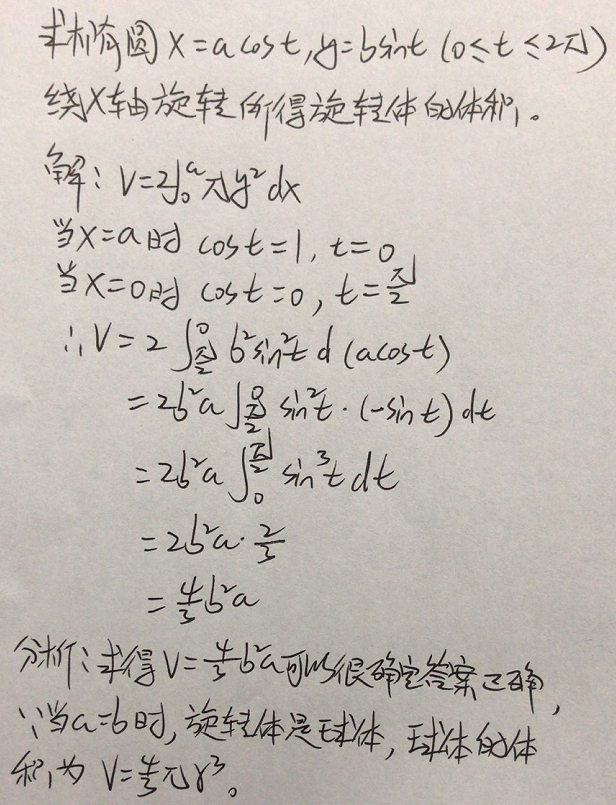 求椭圆 x=a cost, y=bsint (0≤t≤2π)
绕X轴旋转所得旋转体的体积。
解: V=2∫₀ᵃ πy² dx
当x=a时 cost=1, t=0
当x=0时 cost=0, t=π/2
∴V=2∫_{π/2}^{0} b²sin²t d(acost)
=2b²a∫_{π/2}^{0} sin²t·(-sint)dt
=2b²a∫_{0}^{π/2} sin³t dt
=2b²a·2/3
=4/3b²a
分析: 求得V=4/3b²a可以很确定答案正确,
∵当a=b时, 旋转体是球体, 球体的体
积为 V=4/3πr³。